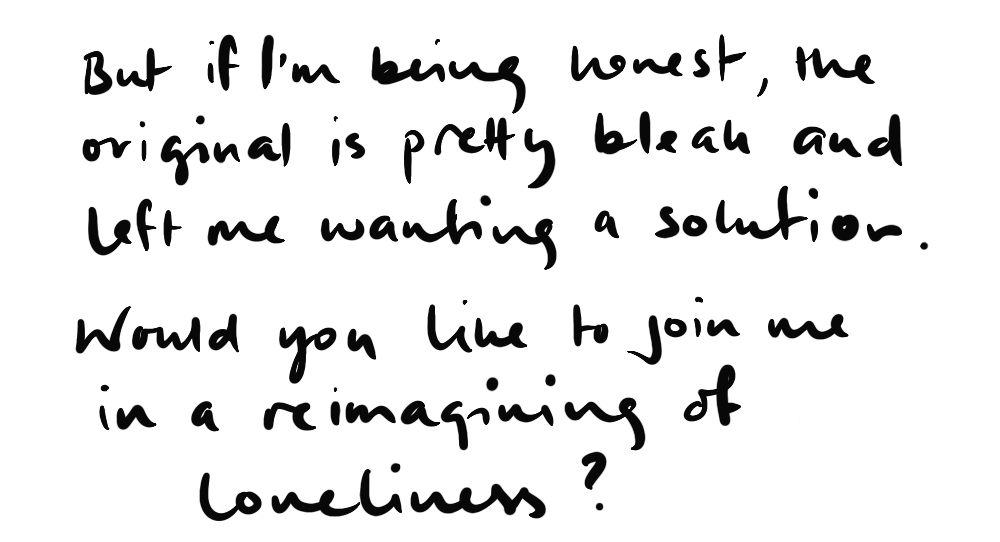 But if I'm being honest, the
original is pretty bleak and
left me wanting a solution.
Would you like to join me
in a reimagining of
loneliness?